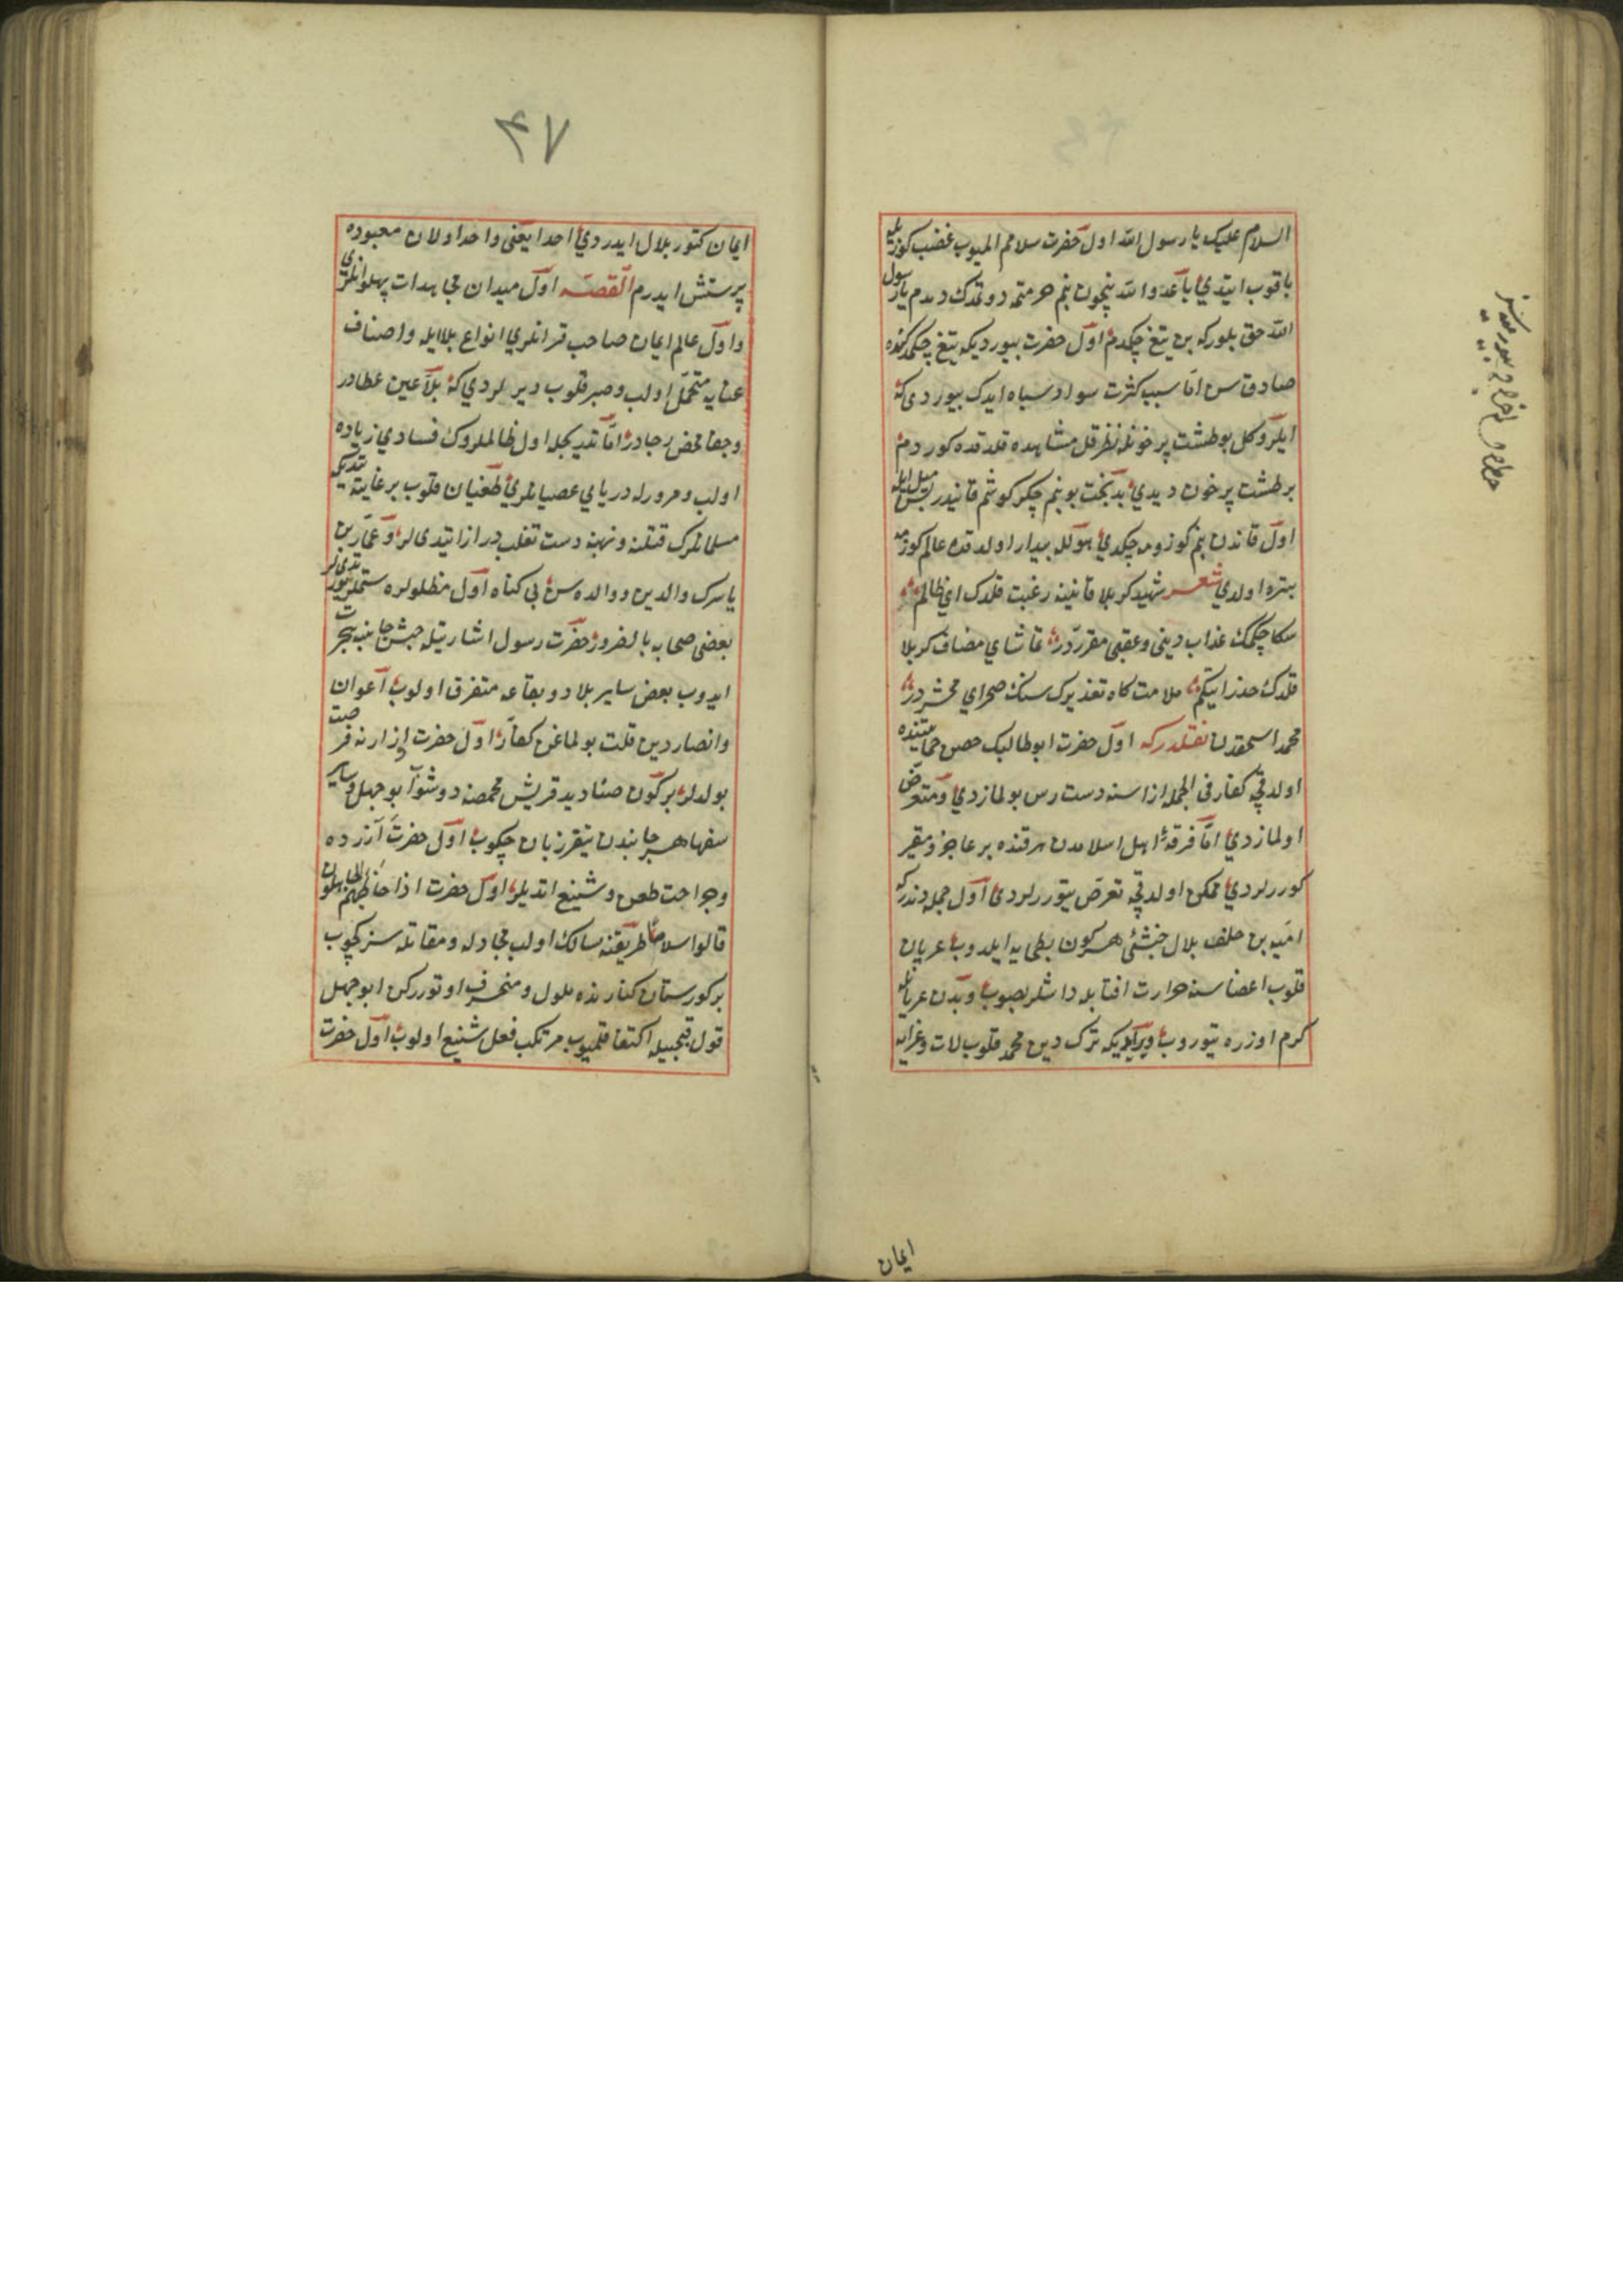 السلام علیک یا رسول الله اول حضرت سلامم المیوب غضب کوزیله
باقوب ایتدی یا عدو الله نیچون بنم حرمتم دوتمدک دیدم یا رسول
الله حق بلورکه بن تیغ چکمدم اول حضرت بیوردیکه تیغ چکمدکنده
صادق سن اما سبب کثرت سواد سپاه ایدک بیوردی که
ایلرو کل بو طشت پر خونه نظر قل مشاهده قلدقده کوردم
بر طشت پر خون دیدی بدبخت بو بنم جکر کوشم قانیدر بس میل ایله
اول قاندن بنم کوزومه چکدی هولله بیدار اولدقده عالم کوزمه
تیره اولدی شعر شهید کربلا قانینه رغبت قلدک ای ظالم
سکا چکمک عذاب دینی و عقبی مقرردر تماشای مضاف کربلا
قلدک حذر ایتکم ملامت کاه تعذیرک سنک صحرای محشردر
محمد اسحقدن نقلدرکه اول حضرت ابوطالبک حصن حمایتنده
اولدقچه کفار فی الجمله ازاسنه دست رس بولمازدی و متعرض
اولمازدی اما فرقهٔ اهل اسلامدن هر قنده بر عاجز و فقیر
کوررلردی ممکن اولدقچه تعرض یتوررلردی اول جمله دندرکه
امیه بن خلف بلال حبشئی هر کون بطحایه ایلدوب عریان
قلوب اعضاسنه حرارت افتابله داشلر بصوب و بدن عریانله
کرم اوزره یتوروب دیرایدیکه ترک دین محمد قلوب لات و عزایه
ایمان
۴۷
ایمان کتور بلال ایدردی احدا یعنی واحد اولان معبوده
پرستش ایدرم القصه اول میدان مجاهدات پهلوانلری
و اول عالم ایمان صاحب قرانلری انواع بلاایله و اصناف
عنایه متحمل اولب و صبر قلوب دیرلردی که بلا عین عطادر
و جفا محض رجادر اما تدریجله اول ظالملروک فسادی زیاده
اولب و مرورله دریای عصیانلری طغیان قلوب بر غایته یتدیکه
مسلمانلرک قتلنه و نهبنه دست تغلب دراز ایتدیلر و عمار بن
یاسرک والدین و والده سن بی کناه اول مظلولره ستملر یتوردیلر
بعضی صحابه بالضرور حضرت رسول اشارتیله حبش جانبنه هجرت
ایدوب بعض سایر بلاد و بقاعه متفرق اولوب اعوان
و انصاردین قلت بولماغن کفار اول حضرت ازارنه فرصت
بولدلر بر کون صنادید قریش مجمعنه دوشوا بوجهل و سایر
سفها هر جانبدن تیغ زبان چکوب اول حضرت آزرده
و جراحت طعن و شنیع ایتدیلر اول حضرت اذا خاطبهم الجاهلون
قالوا سلاما طریقنه سالک اولب مجادله و مقاتله سز کچوب
بر کورستان کنارنده ملول و منحرف اوتوررکن ابوجهل
قول قبیحیله اکتفا قلمیوب مرتکب فعل شنیع اولوب اول حضرت